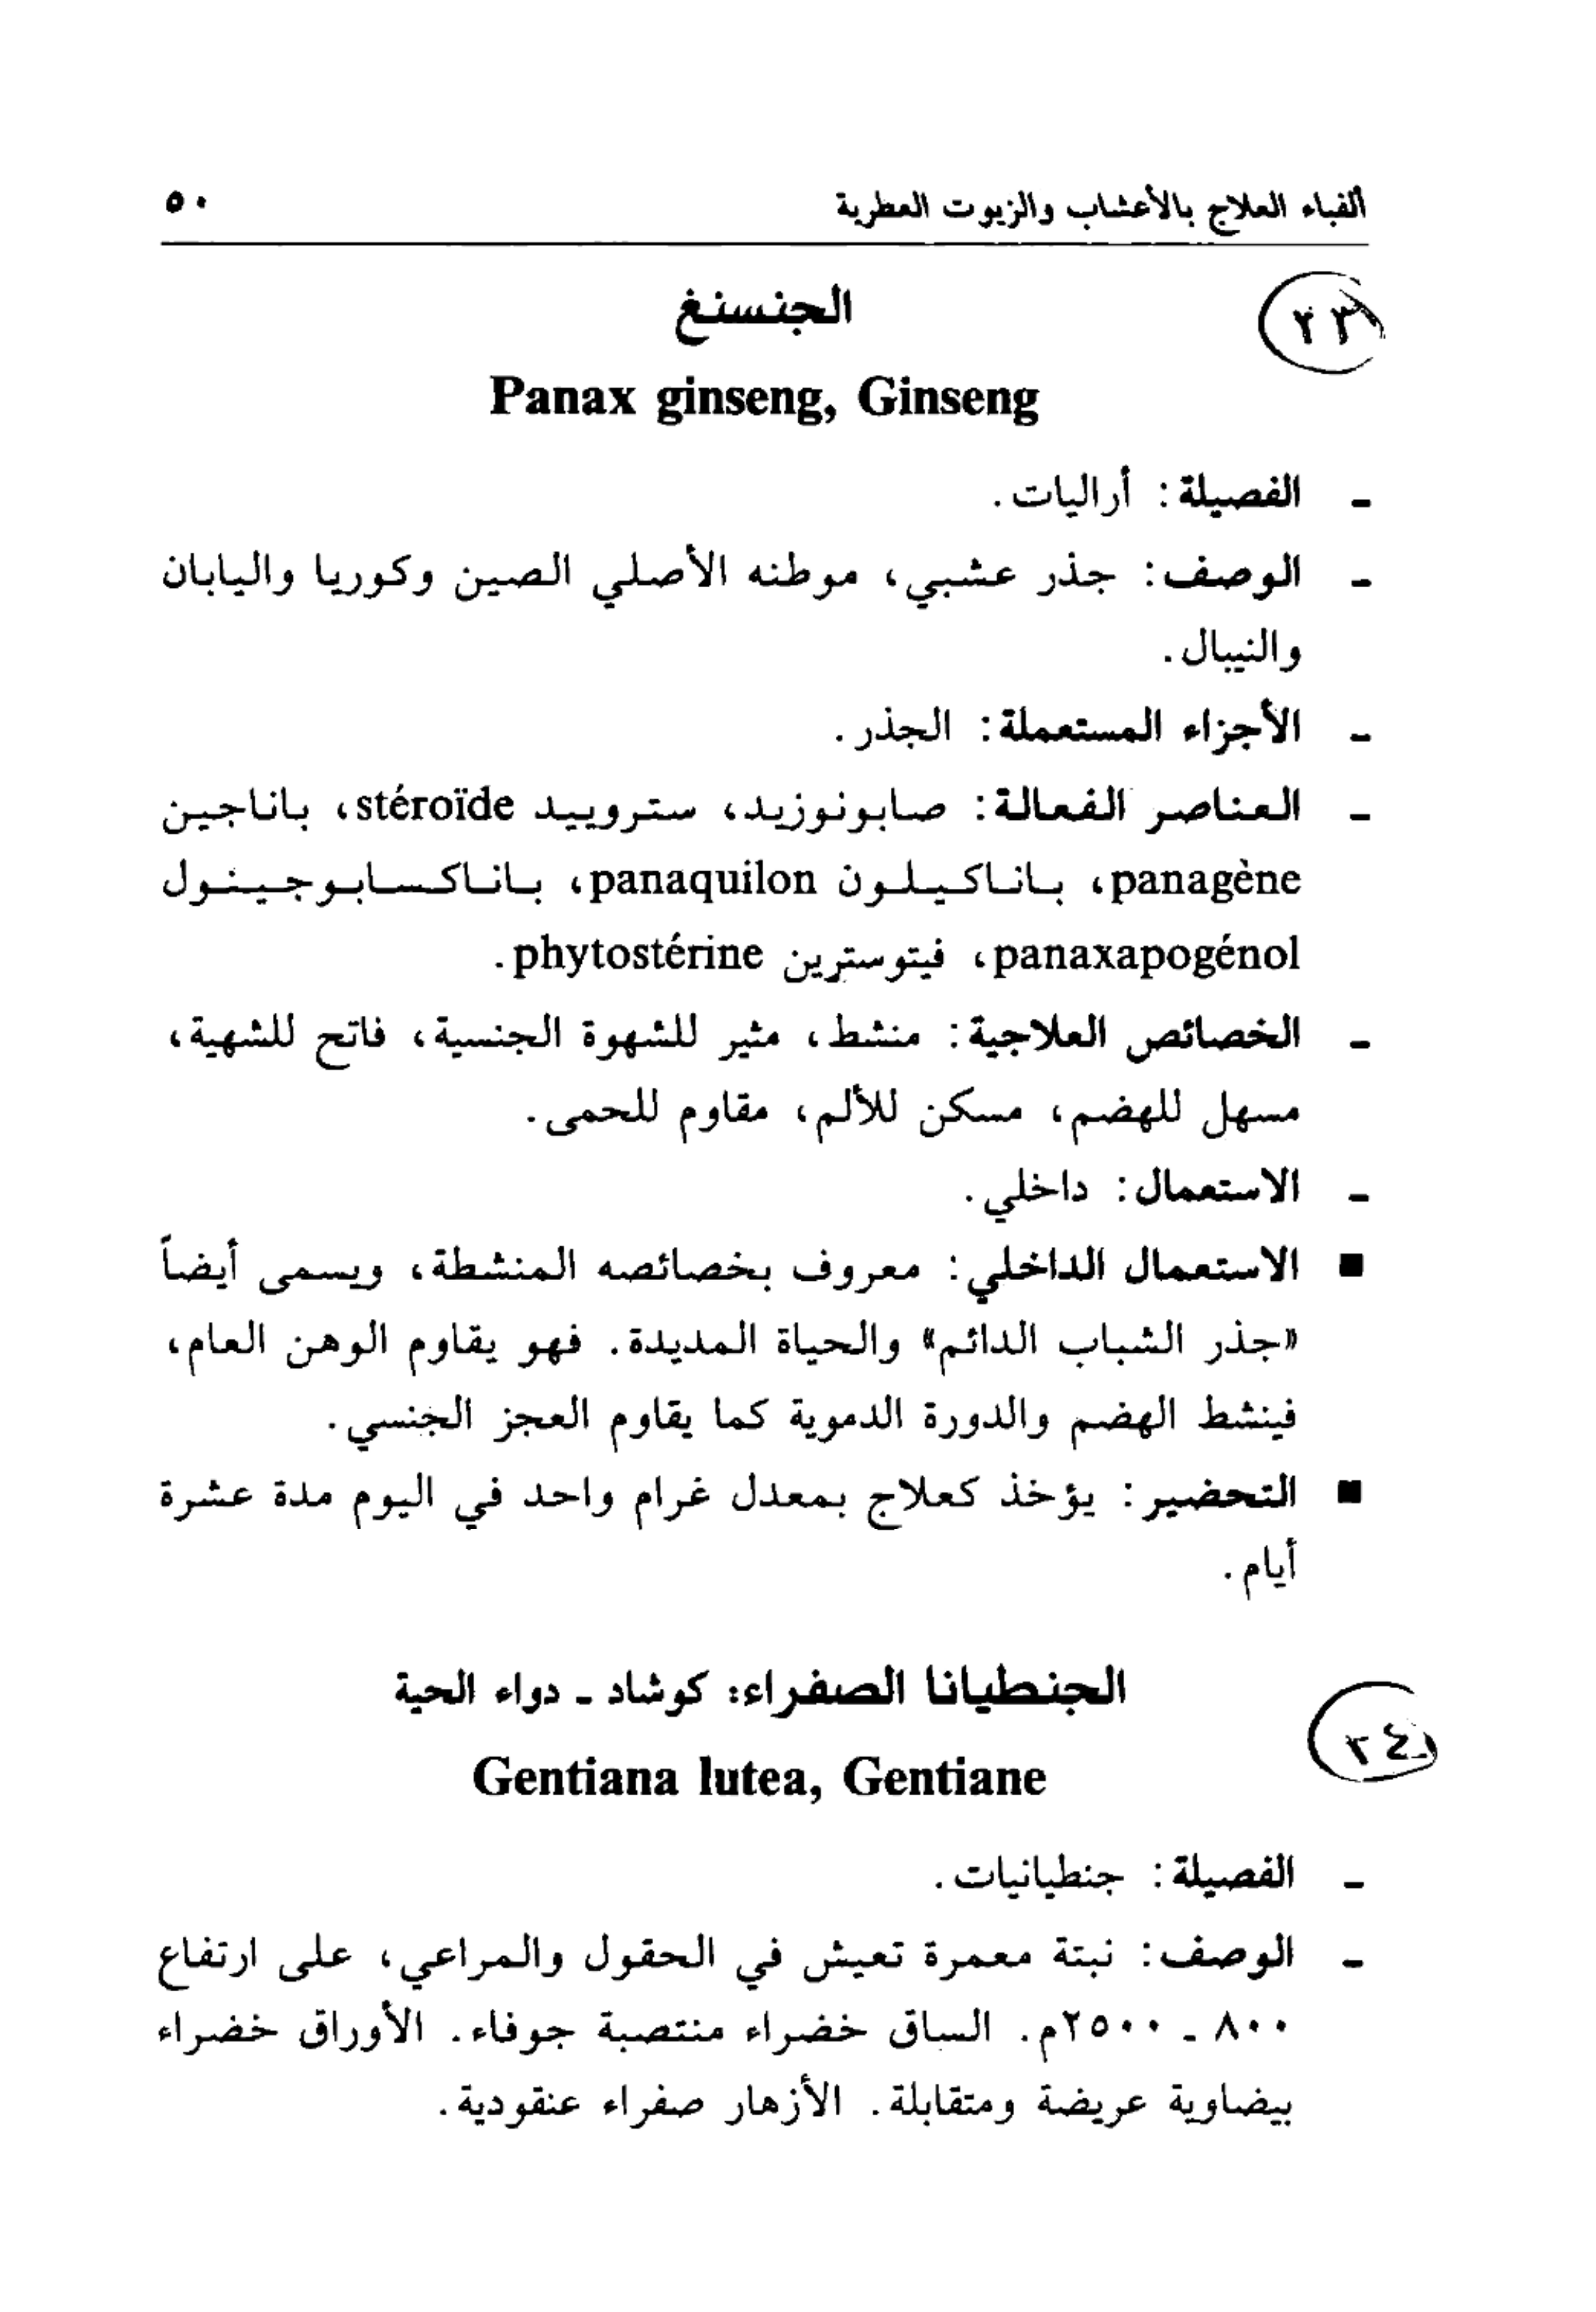 ألفباء العلاج بالأعشاب والزيوت العطرية ٥٠
٢٣
الجنسنغ
Panax ginseng, Ginseng
ـ الفصيلة: أراليات.
ـ الوصف: جذر عشبي، موطنه الأصلي الصين وكوريا واليابان
والنيبال.
ـ الأجزاء المستعملة: الجذر.
ـ العناصر الفعالة: صابونوزيد، ستروييد stéroïde، باناجين
panagène، باناكيلون panaquilon، باناكسابوجينول
panaxapogénol، فيتوسترين phytostérine.
ـ الخصائص العلاجية: منشط، مثير للشهوة الجنسية، فاتح للشهية،
مسهل للهضم، مسكن للألم، مقاوم للحمى.
ـ الاستعمال: داخلي.
■ الاستعمال الداخلي: معروف بخصائصه المنشطة، ويسمى أيضاً
«جذر الشباب الدائم» والحياة المديدة. فهو يقاوم الوهن العام،
فينشط الهضم والدورة الدموية كما يقاوم العجز الجنسي.
■ التحضير: يؤخذ كعلاج بمعدل غرام واحد في اليوم مدة عشرة
أيام.
الجنطيانا الصفراء: كوشاد ـ دواء الحية
٢٤
Gentiana lutea, Gentiane
ـ الفصيلة: جنطيانيات.
ـ الوصف: نبتة معمرة تعيش في الحقول والمراعي، على ارتفاع
٨٠٠ ـ ٢٥٠٠م. الساق خضراء منتصبة جوفاء. الأوراق خضراء
بيضاوية عريضة ومتقابلة. الأزهار صفراء عنقودية.